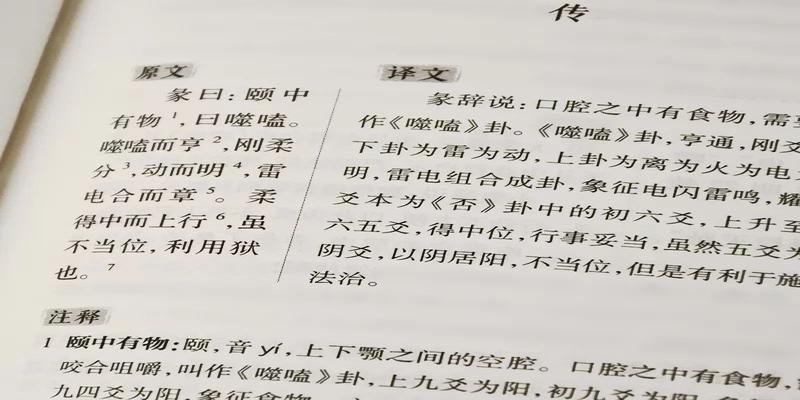 传
原文
彖曰：颐中
有物¹，曰噬嗑。
噬嗑而亨²，刚柔
分³，动而明⁴，雷
电合而章⁵。柔
得中而上行⁶，虽
不当位，利用狱
也。⁷
译文
彖辞说：口腔之中有食物，需
作《噬嗑》卦。《噬嗑》卦，亨通，刚爻
下卦为雷为动，上卦为离为火为电
明，雷电组合成卦，象征电闪雷鸣，耀
爻本为《否》卦中的初六爻，上升至
六五爻，得中位，行事妥当，虽然五爻为
阴爻，以阴居阳，不当位，但是有利于施
法治。
注释
1 颐中有物：颐，音yí，上下颚之间的空腔。口腔之中有食物，
咬合咀嚼，叫作《噬嗑》卦，上九爻为阳，初九爻为阳，
九四爻为阳，象征食物